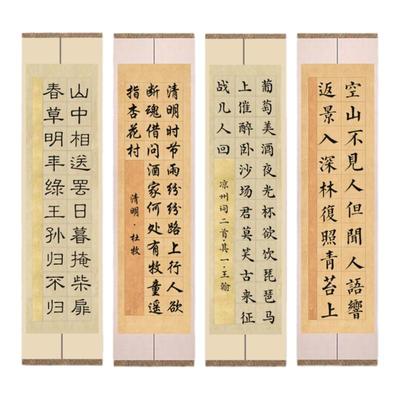 山中相送罢日暮掩柴扉
春草明年綠王孙归不归
清明时节雨纷纷路上行人欲
断魂借问酒家何处有牧童遥
指杏花村
清明·杜牧
葡萄美酒夜光杯欲饮琵琶马
上催醉卧沙场君莫笑古来征
战几人回
凉州词二首·其一·王翰
空山不見人但聞人語響
返景入深林復照青苔上